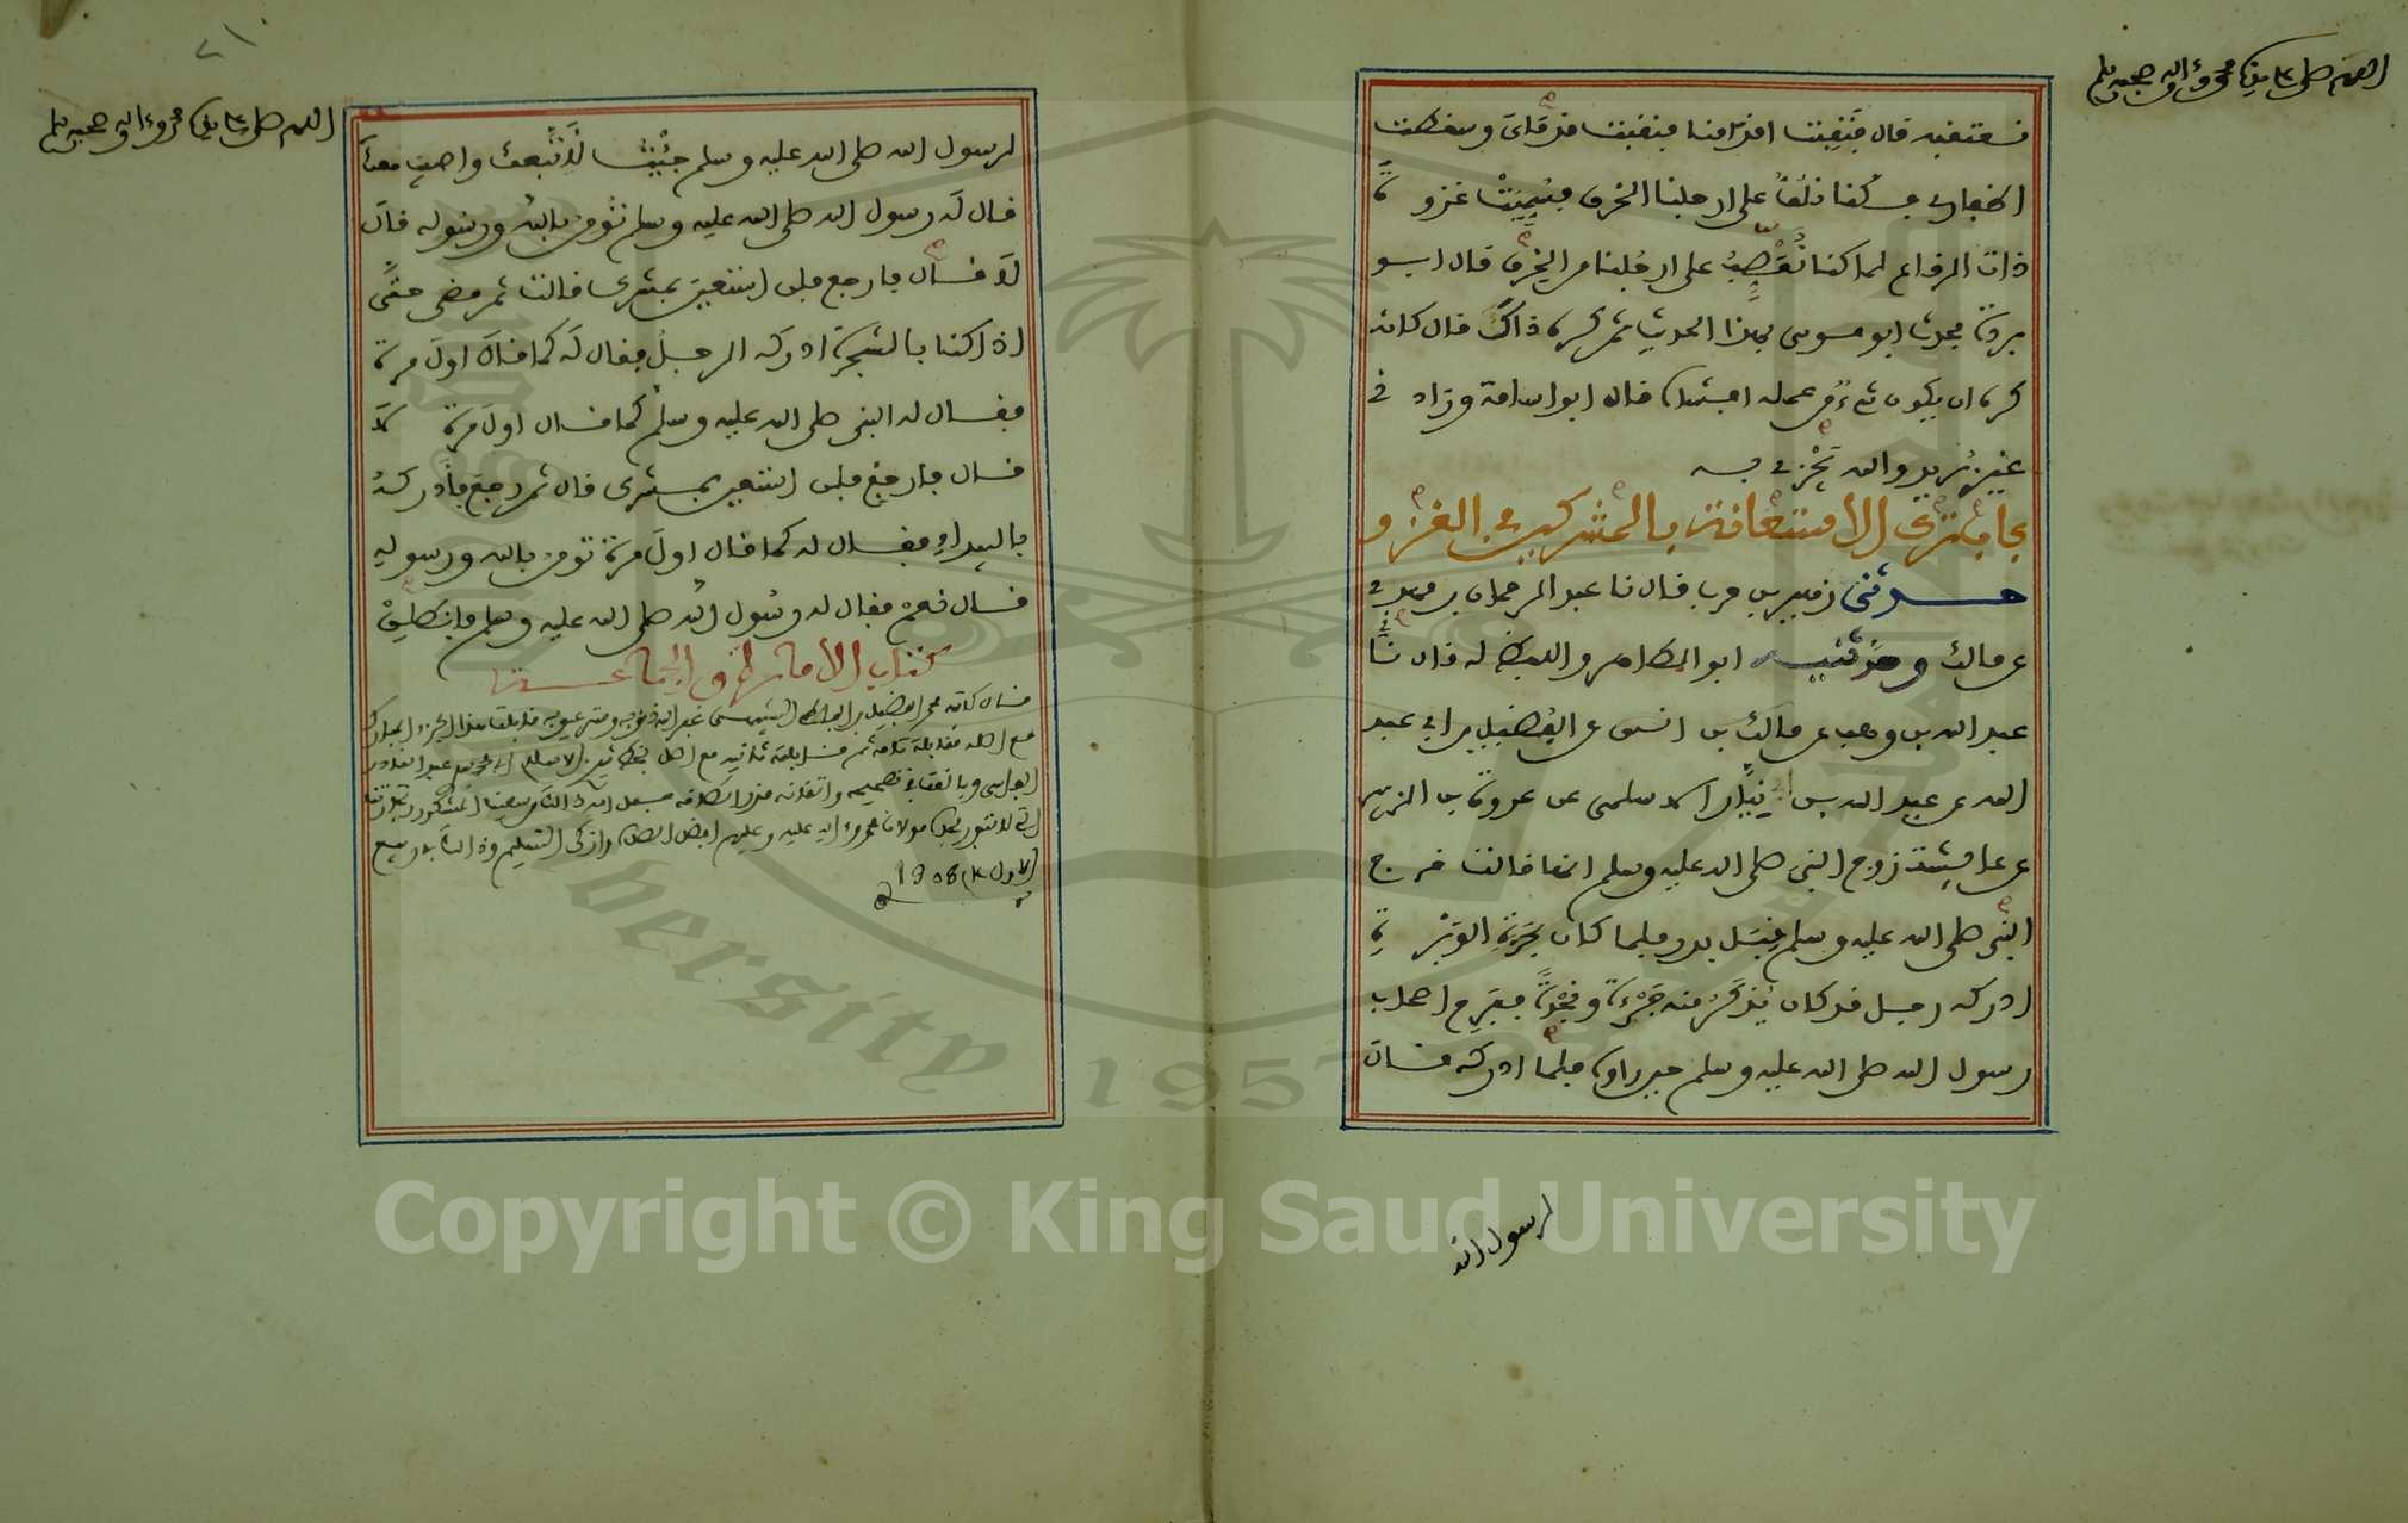 اللهم صل على سيدنا محمد وءاله وصحبه وسلم
نعتقبه قال فنقبت اقدامنا فنقبت قدماى وسقطت
اظفارى فكنا نلف على ارجلنا الخرق فسميت غزوة
ذات الرقاع لما كنا نعصب على ارجلنا من الخرق قال ابو
بردة فحدث ابو موسى بهذا الحديث ثم كره ذاك قال كانه
كره ان يكون شيء من عمله افشاه قال ابو اسامة وزاد في
غير بريد والله يجزي به
الاستعانة بالمشركين في الغزو
حدثني زهير بن حرب قال نا عبد الرحمان بن مهدي
عن مالك وحدثنيه ابو الطاهر واللفظ له قال نا
عبد الله بن وهب عن مالك بن انس عن الفضيل بن ابي عبد
الله عن عبد الله بن نيار الاسلمى عن عروة بن الزبير
عن عائشة زوج النبي صلى الله عليه وسلم انها قالت خرج
النبي صلى الله عليه وسلم قبل بدر فلما كان بحرة الوبرة
ادركه رجل قد كان يذكر منه جرءة ونجدة ففرح اصحاب
رسول الله صلى الله عليه وسلم حين راوه فلما ادركه قال
لرسول الله
٢١
اللهم صل على سيدنا محمد وءاله وصحبه وسلم
لرسول الله صلى الله عليه وسلم جئت لأتبعك واصيب معك
قال له رسول الله صلى الله عليه وسلم تؤمن بالله ورسوله قال
لا قال فارجع فلن استعين بمشرك قالت ثم مضى حتى
اذا كنا بالشجرة ادركه الرجل فقال له كما قال اول مرة
فقال له النبي صلى الله عليه وسلم كما قال اول مرة لا
قال فارجع فلن استعين بمشرك قال ثم رجع فأدركه
بالبيداء فقال له كما قال اول مرة تومن بالله ورسوله
قال نعم فقال له رسول الله صلى الله عليه وسلم فانطلق
كتاب الامارة والجماعة
قال كاتبه محمد الفضيل بن الفاطمي الشبيهى غفر الله ذنوبه وستر عيوبه قد بلغت هذا الجزء المبارك
مع اصله مقابلة تامة ثم قابلته ثانيه مع اصل بخط عبد القادر
الفاسى وبالغت في تصحيحه واتقانه قدر الطاقة جعل الله ذالك من سعينا المشكور وتجارتنا
التي لا تبور بجاه مولانا محمد وءاله عليه وعليهم افضل الصلاة وازكى التسليم وذالك بربيع
الاول عام 1308
Copyright © King Saud University
1957